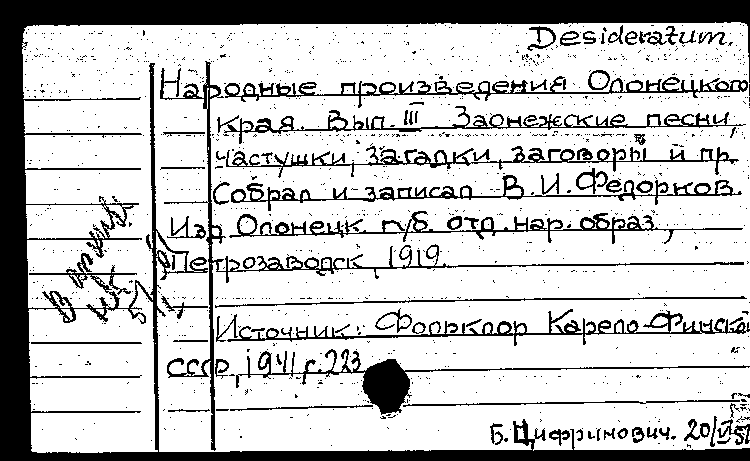 Desideratum.
Народные произведения Олонецкого
края. Вып. III Заонежские песни,
частушки, загадки, заговоры и пр.
Собрал и записал В. И. Федорков.
Изд Олонецк. губ. отд. нар. образ,
Петрозаводск, 1919.
Источник: Фольклор Карело-Финской
ССР, 1941 г. 223
В архив
Б. Цифринович. 20/VI 51